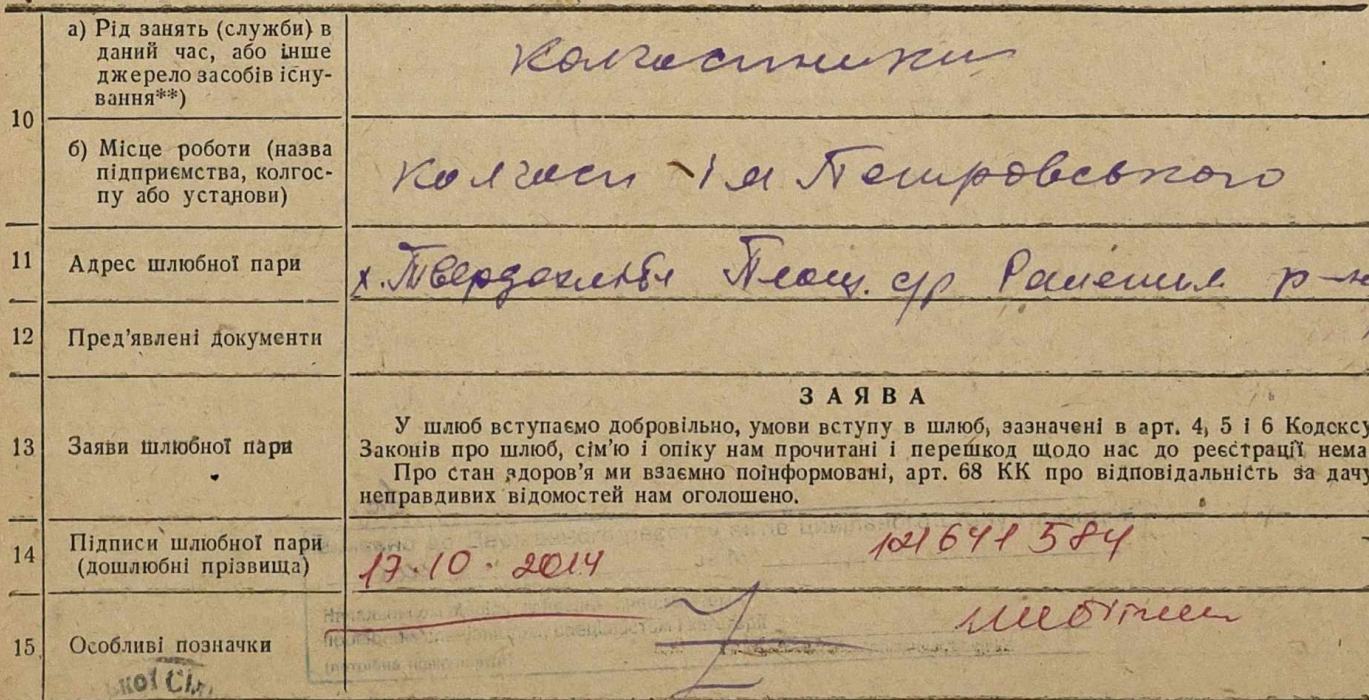 10
а) Рід занять (служби) в
даний час, або інше
джерело засобів існу-
вання**)
колгоспники
б) Місце роботи (назва
підприємства, колгос-
пу або установи)
колгосп ім Петровського
11
Адрес шлюбної пари
х. Твердохліби Площ. с/р р-н
12
Пред'явлені документи
13
Заяви шлюбної пари
ЗАЯВА
У шлюб вступаємо добровільно, умови вступу в шлюб, зазначені в арт. 4, 5 і 6 Кодексу
Законів про шлюб, сім'ю і опіку нам прочитані і перешкод щодо нас до реєстрації нема
Про стан здоров'я ми взаємно поінформовані, арт. 68 КК про відповідальність за дачу
неправдивих відомостей нам оголошено.
14
Підписи шлюбної пари
(дошлюбні прізвища)
17.10.2014
641584
15
Особливі позначки